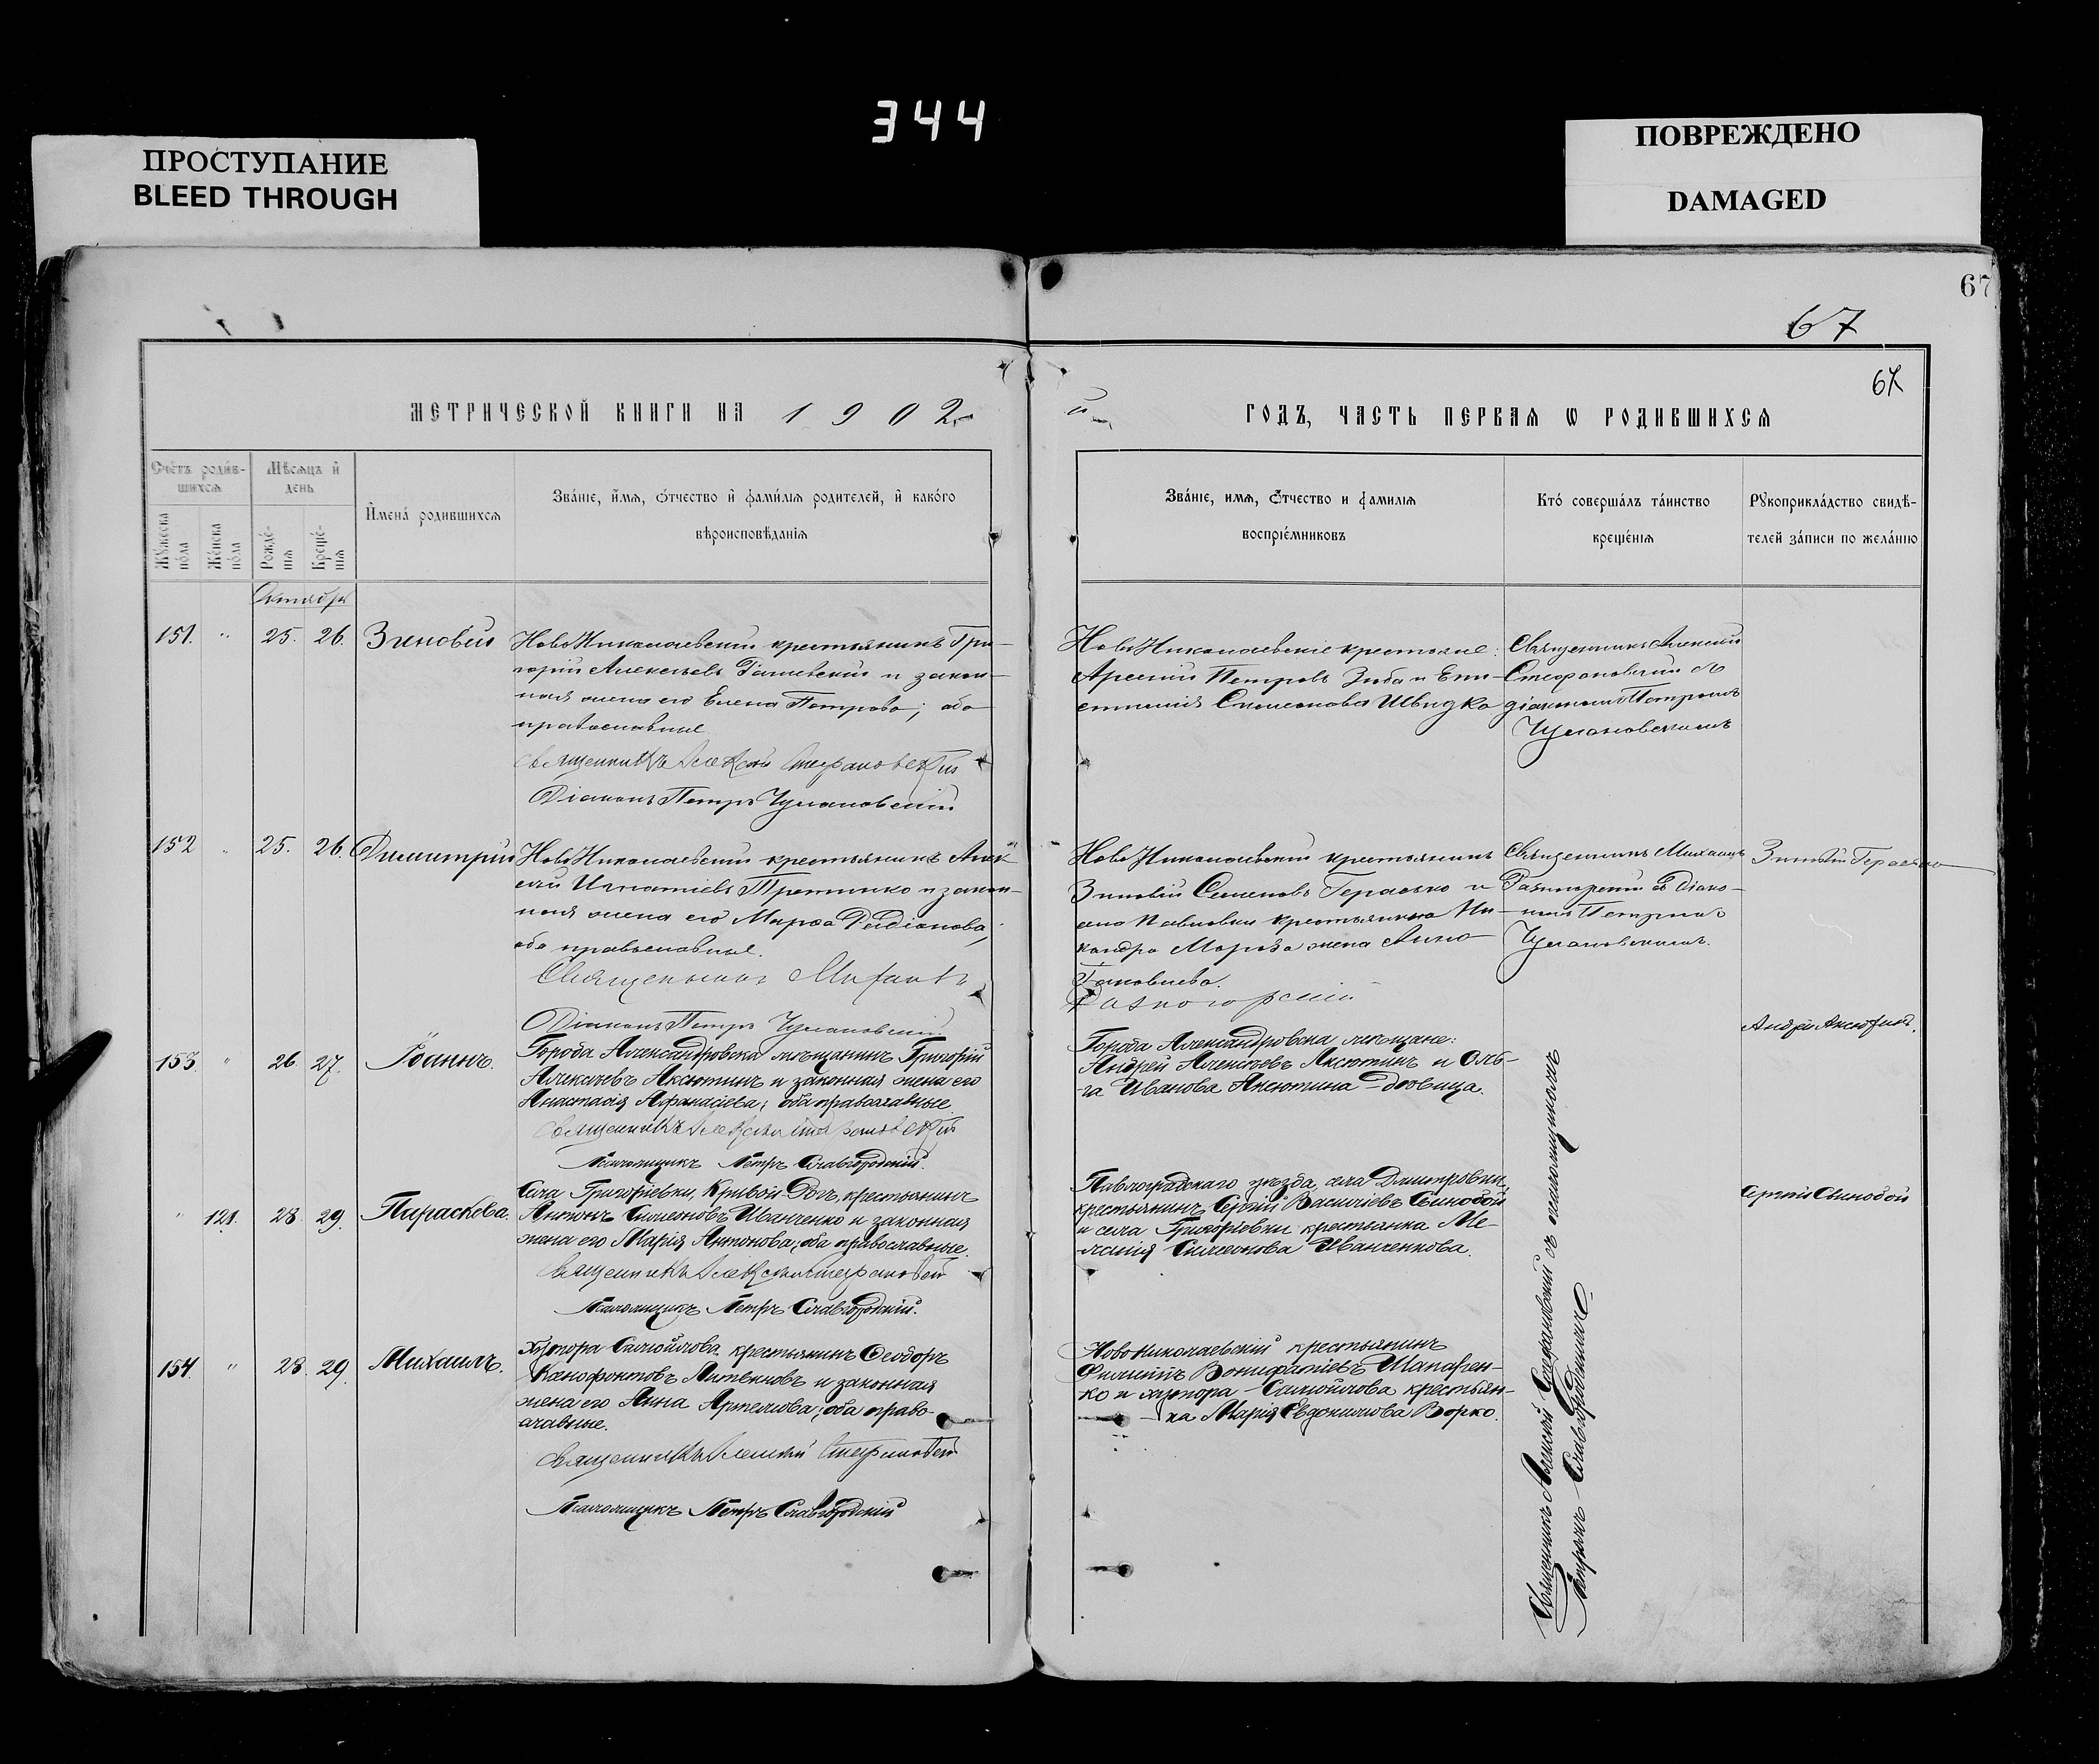 344
ПРОСТУПАНИЕ
BLEED THROUGH
ПОВРЕЖДЕНО
DAMAGED
67
67
67
МЕТРИЧЕСКОЙ КНИГИ НА 1902
й ГОДЪ, ЧАСТЬ ПЕРВАЯ Ѡ РОДИВШИХСЯ
Счетъ родив-
шихся
Мѣсяцъ и
день
Мужеска
пола
Женска
пола
Рожде-
нія
Креще-
нія
Имена родившихся
Званіе, имя, отчество и фамилія родителей, и какого
вѣроисповѣданія
Званіе, имя, отчество и фамилія
воспріемниковъ
Кто совершалъ таинство
крещенія
Рукоприкладство свидѣ-
телей записи по желанію
Октябрь
151. " 25. 26. Зиновій
НовоНиколаевскій крестьянинъ Гри-
горій Алексѣевъ и закон-
ная жена его Елена Петрова; оба
православные
Священникъ Алексѣй Стефановскій
Діаконъ Петръ Чумановскій
НовоНиколаевскіе крестьяне:
Арсеній Петровъ Зюба и
Симеонова Швидко
Священникъ Алексій
Стефановскій съ
діакономъ Петромъ
Чумановскимъ
152 " 25. 26. Димитрій
НовоНиколаевскій крестьянинъ Алек-
сѣй Игнатіевъ и закон-
ная жена его Марѳа Родіонова;
оба православные.
Священникъ Михаилъ
Діаконъ Петръ Чумановскій
НовоНиколаевскій крестьянинъ
Зиновій Семеновъ Герасько и
села Павловки крестьянина Ни-
кандра Мороза жена Анна
Яковлева.
Разногорскій
Священникъ Михаилъ
Разногорскій съ Діако-
номъ Петромъ
Чумановскимъ.
Зиновій Герасько
153. " 26. 27. Іоаннъ.
Города Александровска мѣщанинъ Григорій
Алексѣевъ Аксютинъ и законная жена его
Анастасія Афанасіева; оба православные.
Священникъ Алексѣй Стефановскій
Псаломщикъ Петръ Славгородскій.
Города Александровска мѣщане:
Андрей Алексѣевъ Аксютинъ и Оль-
га Иванова Аксютина – дѣвица.
Андрей Аксютинъ.
" 121. 28 29. Параскева.
Села Григоріевки, Кривой-Рогъ, крестьянинъ
Антонъ Симеоновъ Иванченко и законная
жена его Марія Антонова; оба православные.
Священникъ Алексѣй Стефановскій
Псаломщикъ Петръ Славгородскій.
Павлоградскаго уѣзда, села Дмитровки,
крестьянинъ Сергій Василіевъ Синобой
и села Григоріевки крестьянка Ме-
ланія Симеонова Иванченкова.
Сергѣй Синобой
154. " 28 29. Михаилъ.
Хутора Самойлова крестьянинъ Ѳеодоръ
Ксенофонтовъ и законная
жена его Анна; оба право-
славные.
Священникъ Алексѣй Стефановскій
Псаломщикъ Петръ Славгородскій
Новониколаевскій крестьянинъ
Филиппъ Вонифатіевъ Шапарен-
ко и хутора Самойлова крестьян-
ка Марія Евдокимова Ворко.
Священникъ Алексій Стефановскій съ псаломщикомъ
Петромъ Славгородскимъ